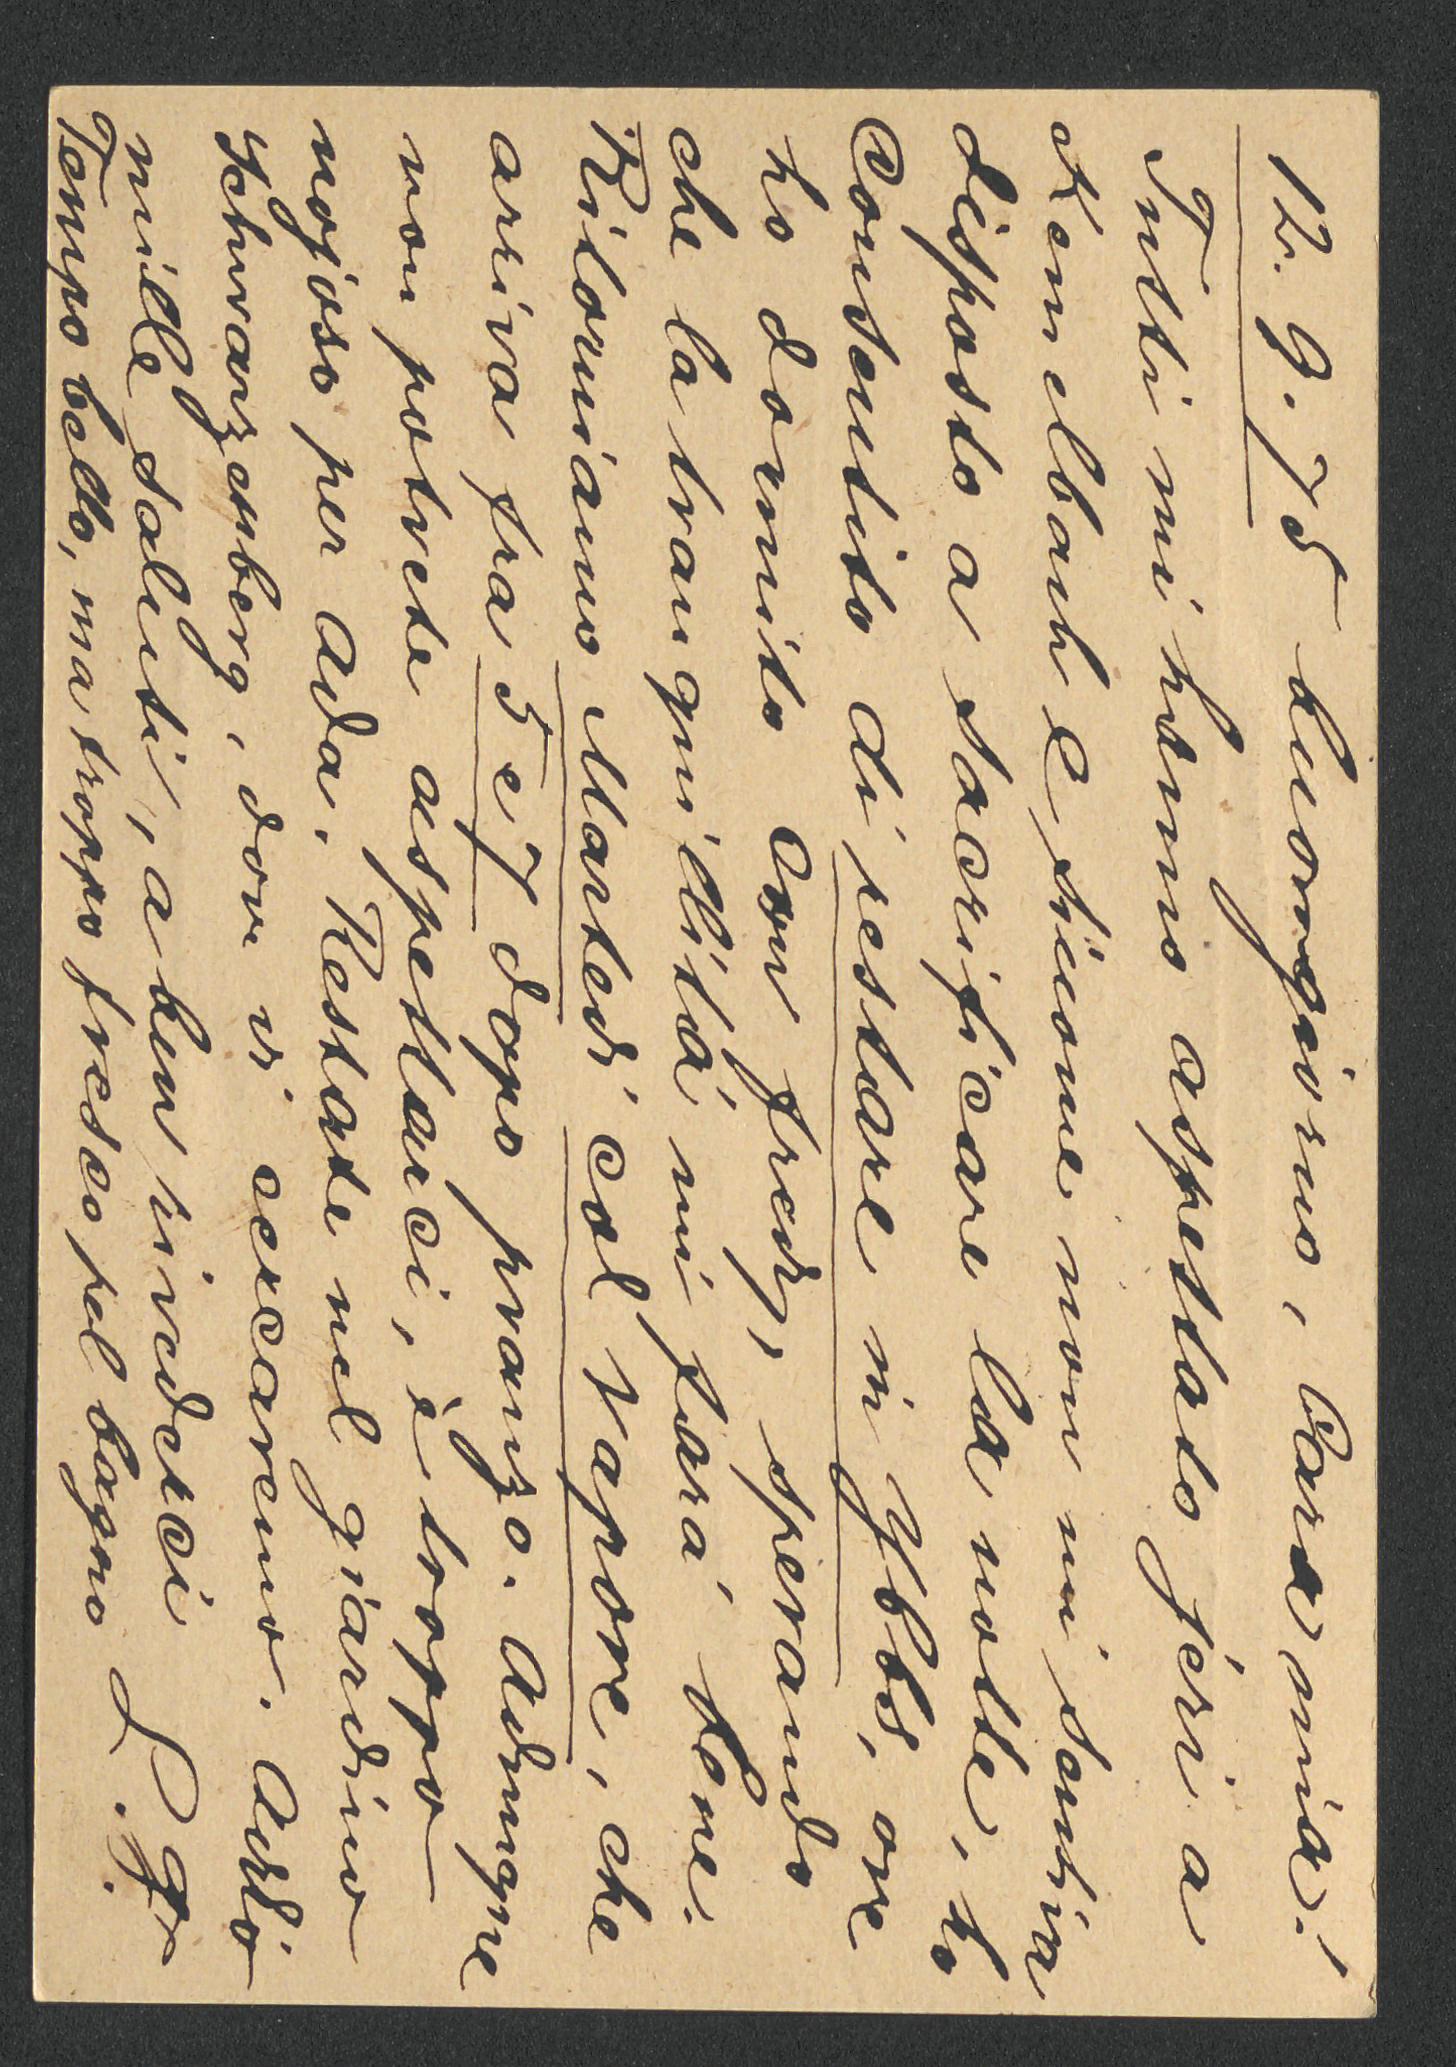 12. 9. 75 Luongivno, Cara mia!
Tutti mi hanno aspettato jeri a
Kemelbach e siccome non mi sentiva
disposto a sacrificare la notte, ho
consentito di restare in Ybbs, ove
ho dormito con fredy, sperando
che la tranquillitá mi fará bene.
Ritorniamo Martedi col vapore, che
arriva fra 5 e 7 dopo pranzo. Adunque
non potrete aspettarci, è troppo
nojoso per Ada. Restate nel giardino
Schwarzenberg, dove vi cercaremo. Addio
mille saluti, a ben rivederci
Tempo bello, ma troppo fresco pel bagno L. G.